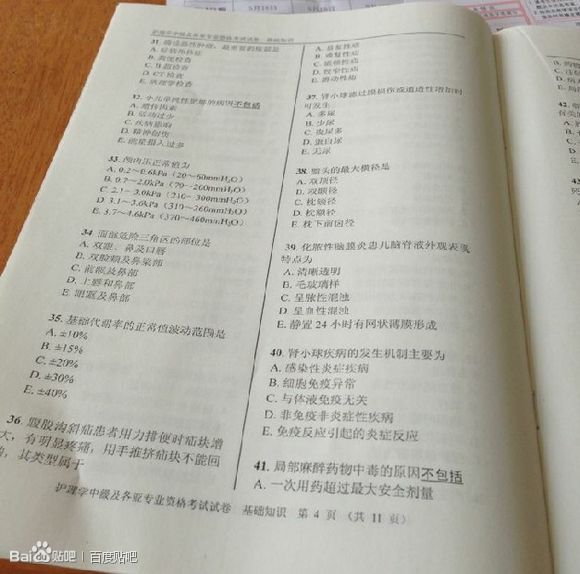 护理学中级及各亚专业资格考试试卷 基础知识
C. B超检查
D. CT检查
E. 病理学检查
32. 小儿单纯性肥胖的病因不包括
A. 遗传因素
B. 活动过少
C. 疾病影响
D. 精神创伤
E. 能量摄入过多
33. 颅内压正常值为
B. 0.7~2.0kPa（70~200mmH₂O）
C. 2.1~3.0kPa（210~300mmH₂O）
34. 面部危险三角区的部位是
A. 双眼、鼻及口唇
B. 双脸颊及鼻梁部
C. 前额及鼻部
D. 上唇和鼻部
E. 眼眶及鼻部
35. 基础代谢率的正常值波动范围是
A. ±10%
B. ±15%
C. ±20%
D. ±30%
E. ±40%
36. 腹股沟斜疝患者用力排便时疝块增
大，有明显疼痛，用手推挤疝块不能回
纳，其类型属于
A. 易复性疝
B. 难复性疝
C. 嵌顿性疝
D. 绞窄性疝
E. 滑动性疝
37. 肾小球滤过膜损伤或通透性增加时
可发生
A. 多尿
B. 少尿
C. 夜尿多
D. 蛋白尿
E. 无尿
38. 胎头的最大横径是
A. 双顶径
B. 双颞径
C. 枕颏径
D. 枕额径
E. 枕下前囟径
39. 化脓性脑膜炎患儿脑脊液外观表现
特点为
A. 清晰透明
B. 毛玻璃样
C. 呈脓性混浊
D. 呈血性混浊
E. 静置24小时有网状薄膜形成
40. 肾小球疾病的发生机制主要为
A. 感染性炎症疾病
B. 细胞免疫异常
C. 与体液免疫无关
D. 非免疫非炎症性疾病
E. 免疫反应引起的炎症反应
41. 局部麻醉药物中毒的原因不包括
A. 一次用药超过最大安全剂量
护理学中级及各亚专业资格考试试卷 基础知识 第 4 页 （共 11 页）
Bai贴吧 | 百度贴吧